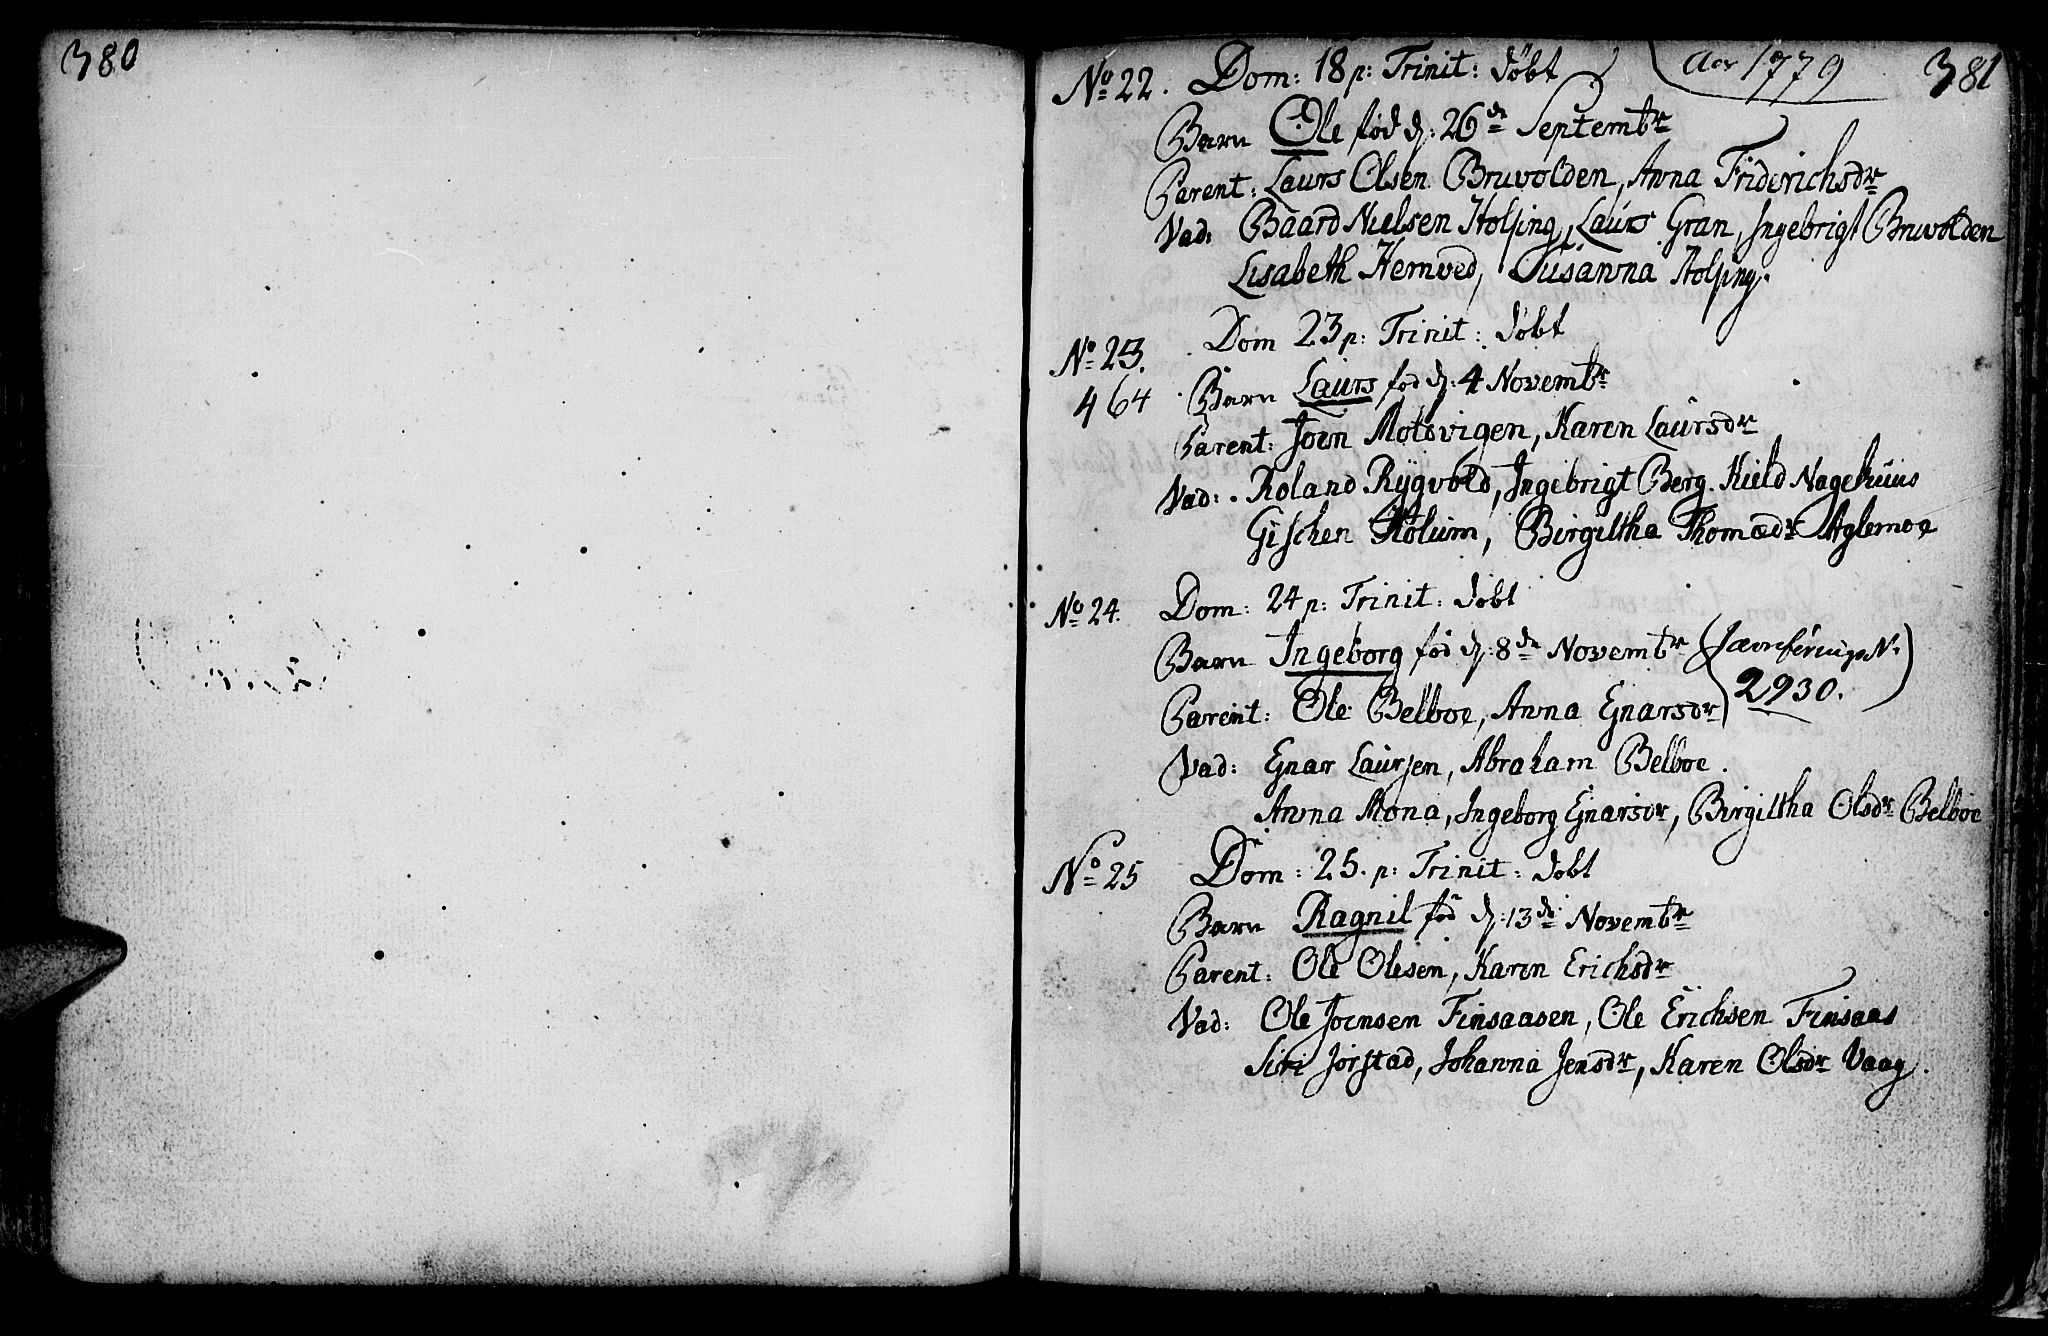 380
Aar 1779 381
No 22. Dom: 18 p: Trinit: døbt
Barn Ole fød d: 26de Septembr
Parent: Laurs Olsen Bruvolden, Anna Friderichsdr
Vad: Baard Nielsen Holsing, Laurs Gran, Ingebrigt Bruvolden
Lisabeth Hemved, Susanna Holsing.
No 23. Dom 23 p: Trinit: døbt
464 Barn Laurs fød d: 4 Novembr
Parent: Joen Motsvigen, Karen Laursdr
Vad: Roland Rygvold, Ingibrigt Berg. Kield Nagelhuus
Gischen Holum, Birgiltha Thomædr Aglemoe
No 24. Dom: 24 p: Trinit: døbt
Barn Ingeborg fød d: 8de Novembr (Jævnføring N.
Parent: Ole Belboe, Anna Ejnarsdr 2930.)
Vad: Ejnar Laursen, Abraham Belboe.
Anna Mona, Ingeborg Ejnarsdr, Birgiltha Olsdr Belboe
No 25 Dom: 25. p: Trinit: døbt
Barn Ragnil fød d: 13de Novembr
Parent: Ole Olesen, Karen Erichsdr
Vad: Ole Joensen Finsaasen, Ole Erichsen Finsaas
Siri Jørstad, Johanna Jensdr, Karen Olsdr Vaag.